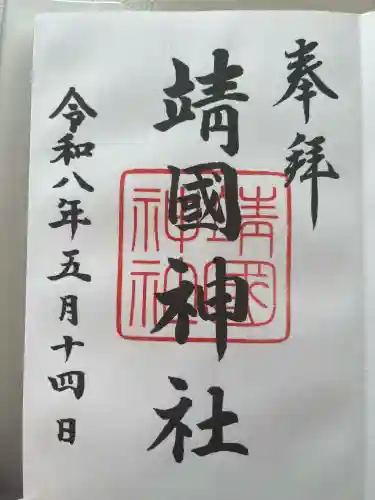 奉拝
靖國神社
靖國神社
令和八年五月十四日